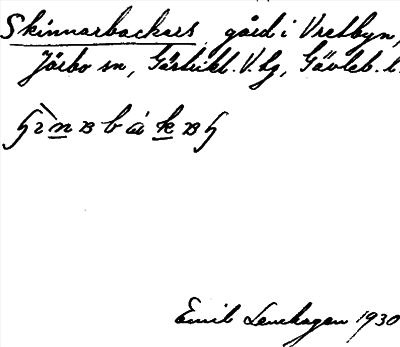 Skinnarbackars gård i Vretbyn,
Järbo sn, Gästrikl. V. hg, Gävleb. l.
Emil Lenhagen 1930